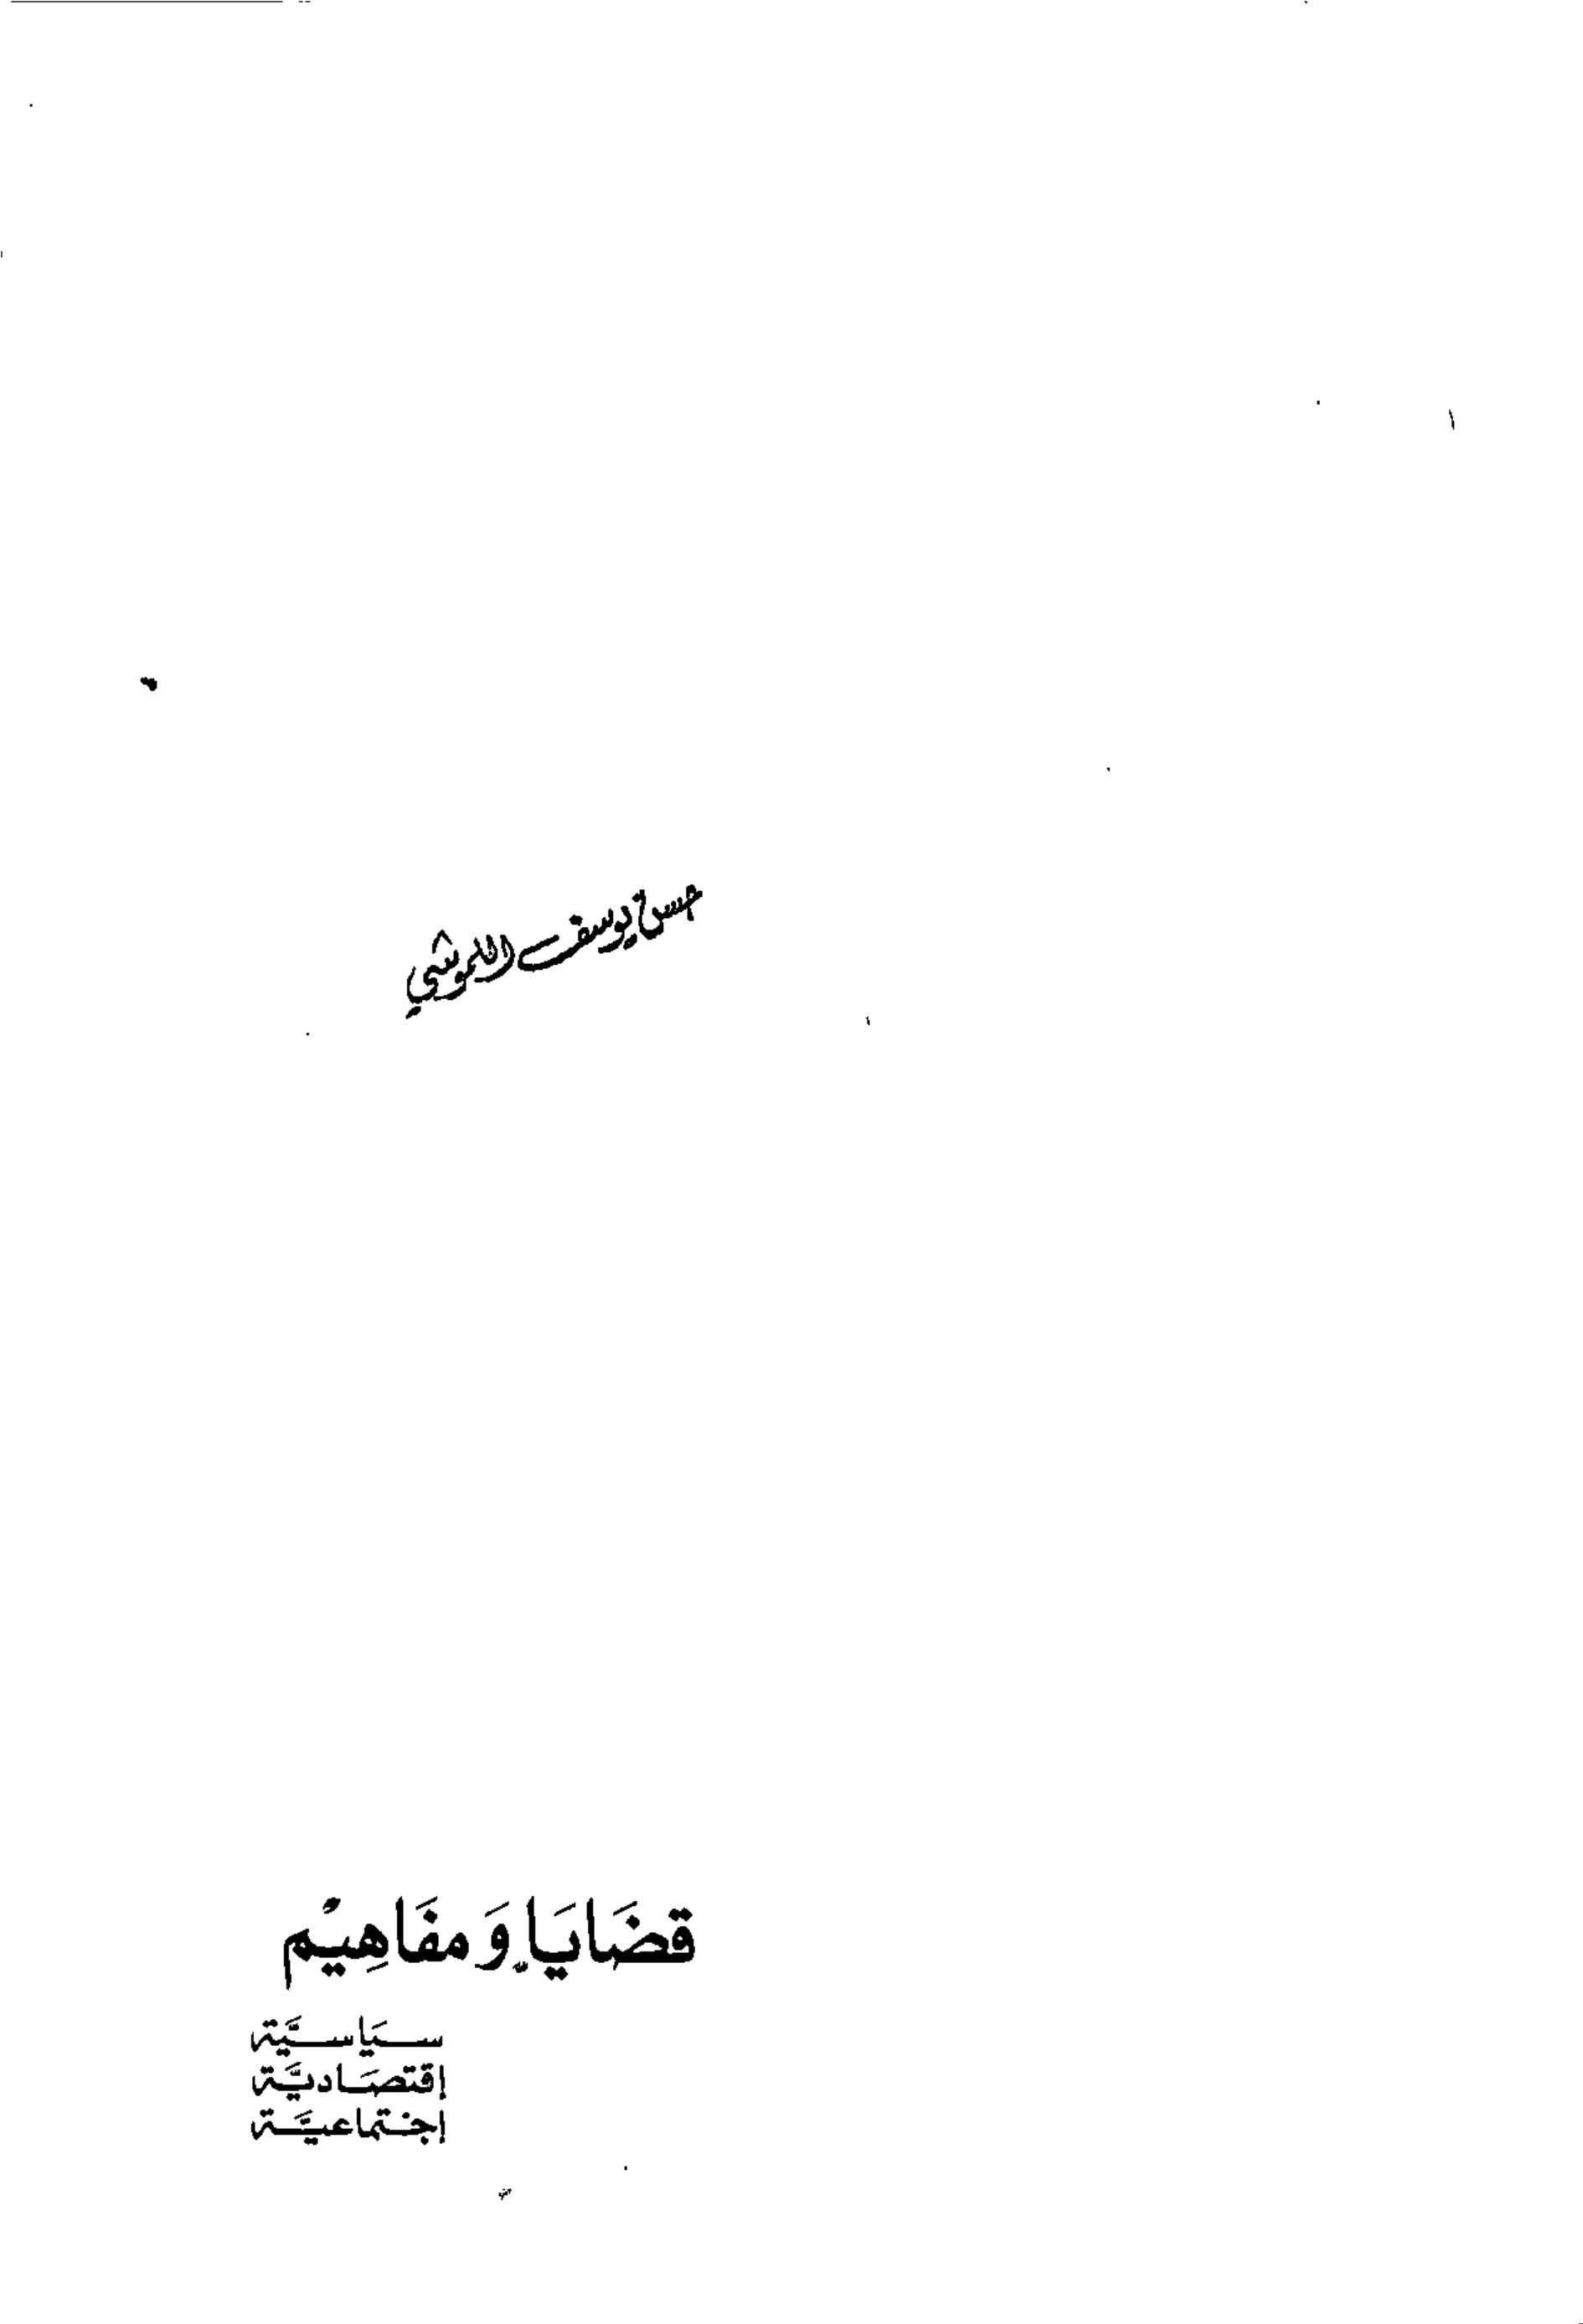 حسن يوسف
قضَايَا وَمفَاهِيْم
سـيَاسـيَّة
إقتصَاديَّة
إجتمَاعيَّـة